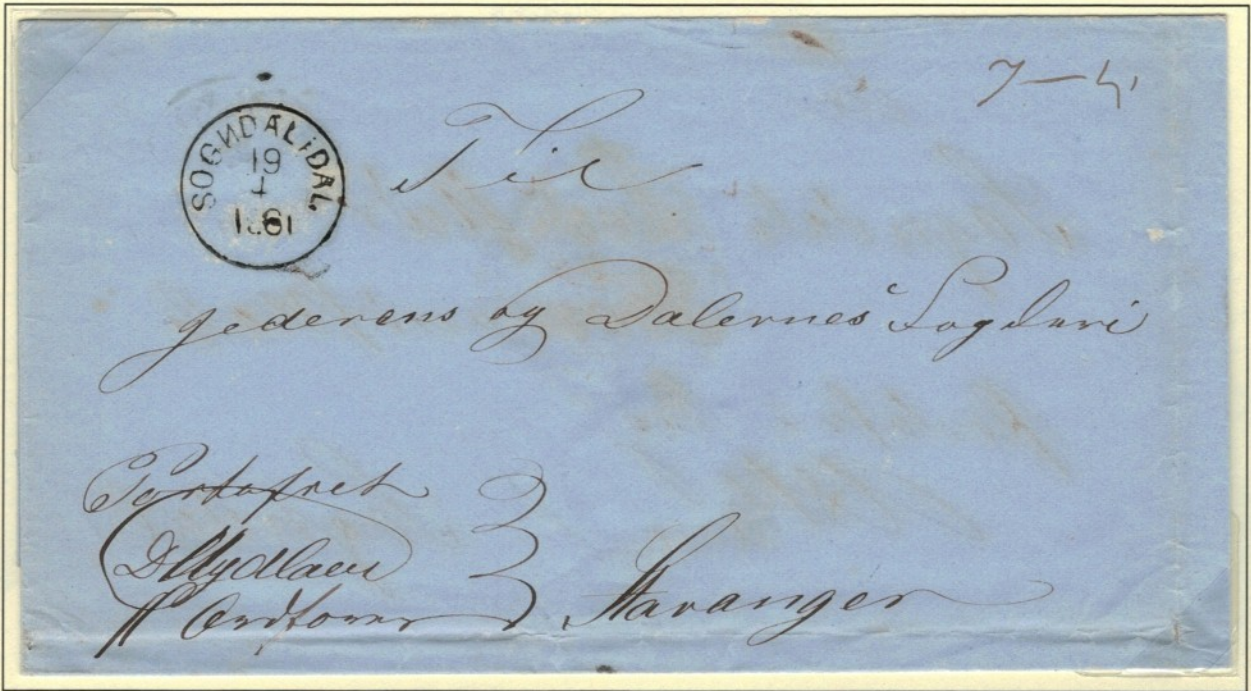 7
SOGNDAL i DAL.
19
1861
Til
Jederens og Dalernes Fogderi
Portofrit
Ordfører
Stavanger